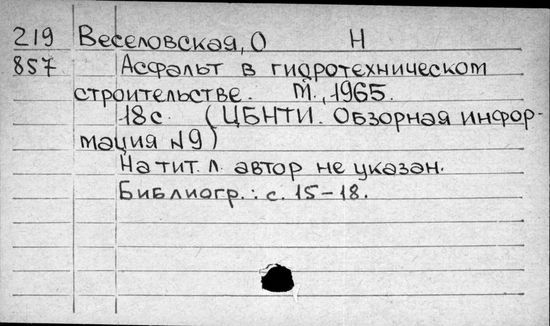 219 Веселовская, О Н
857 Асфальт в гидротехническом
строительстве. М., 1965.
18 с. (ЦБНТИ. Обзорная инфор-
мация № 9)
На тит. л. автор не указан.
Библиогр.: с. 15-18.